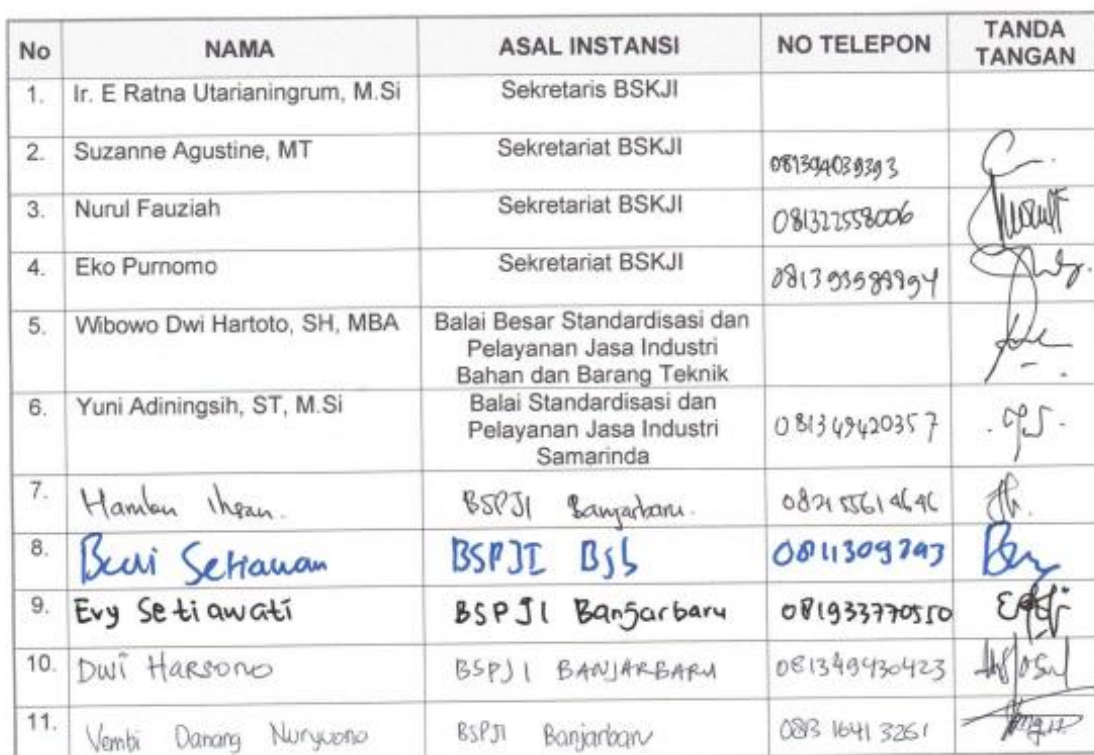 No NAMA ASAL INSTANSI NO TELEPON TANDA TANGAN
1. Ir. E Ratna Utarianingrum, M.Si Sekretaris BSKJI
2. Suzanne Agustine, MT Sekretariat BSKJI 081394039393
3. Nurul Fauziah Sekretariat BSKJI 081322558006
4. Eko Purnomo Sekretariat BSKJI
5. Wibowo Dwi Hartoto, SH, MBA Balai Besar Standardisasi dan
Pelayanan Jasa Industri
Bahan dan Barang Teknik
6. Yuni Adiningsih, ST, M.Si Balai Standardisasi dan 081349420357
Pelayanan Jasa Industri
Samarinda
7. BSPJI Banjarbaru.
8. Budi Setiawan BSPJI Bjb
9. Evy Setiawati BSPJI Banjarbaru 081933770550
10. Dwi Harsono BSPJI BANJARBARU 081349430423
11. Vembi Danang Nuryuono BSPJI Banjarbaru 0813 1641 3261